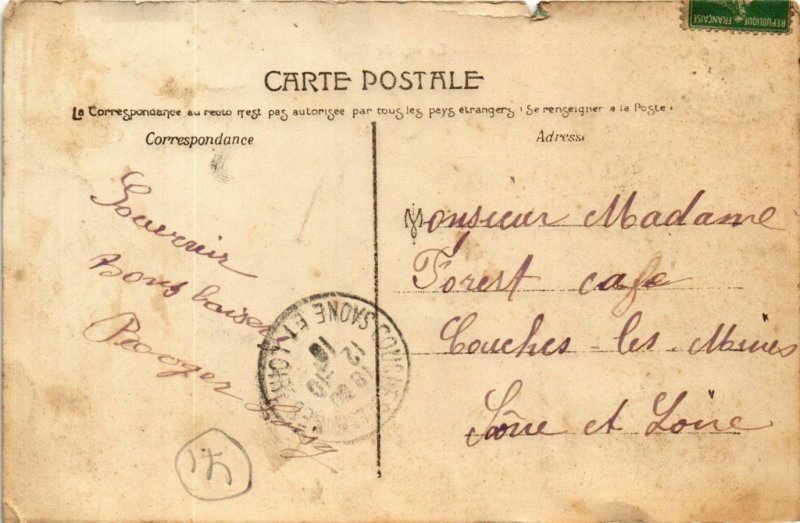 REPUBLIQUE FRANÇAISE
CARTE POSTALE
La Correspondance au recto n'est pas autorisée par tous les pays étrangers (Se renseigner à la Poste)
Correspondance
Adresse
Souvenir
Bons baisers
Rooger
Monsieur Madame
Forest cafe
Couches-les-Mines
Sône et Loire
SAONE ET LOIRE
12